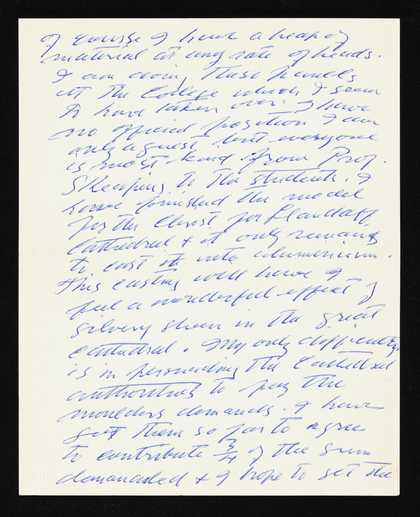 of course I have a heap of
material at any rate of heads.
I am doing these panels
at the College which I seem
to have taken over. I have
no official position I am
only a guest but everyone
is most kind from Prof.
Skeaping to the students. I
have finished the model
for the Christ for Llandaff
Cathedral & it only remains
to cast it into aluminium.
This casting will have I
feel a wonderful effect of
silvery sheen in the great
Cathedral. My only difficulty
is in persuading the Cathedral
authorities to pay the
moulders demands. I have
got them so far to agree
to contribute 3/4 of the sum
demanded & I hope to get the